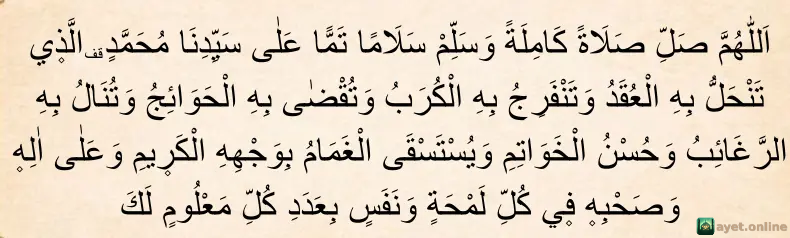 اَللّٰهُمَّ صَلِّ صَلَاةً كَامِلَةً وَسَلِّمْ سَلَامًا تَمًّا عَلٰى سَيِّدِنَا مُحَمَّدٍ ۚقف الَّذ۪ي
تَنْحَلُّ بِهِ الْعُقَدُ وَتَنْفَرِجُ بِهِ الْكُرَبُ وَتُقْضٰى بِهِ الْحَوَائِجُ وَتُنَالُ بِهِ
الرَّغَائِبُ وَحُسْنُ الْخَوَاتِمِ وَيُسْتَسْقَى الْغَمَامُ بِوَجْهِهِ الْكَر۪يمِ وَعَلٰى اٰلِه۪
وَصَحْبِه۪ ف۪ي كُلِّ لَمْحَةٍ وَنَفَسٍ بِعَدَدِ كُلِّ مَعْلُومٍ لَكَ
ayet.online